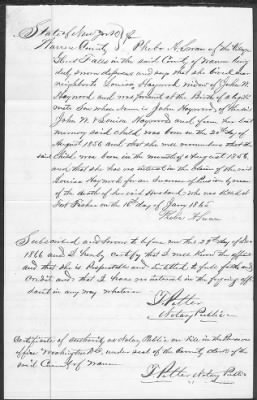 State of New York
Warren County Phebe A. Swan of the Village
Glens Falls in the said County of Warren being
duly sworn deposes and says that she lived near
neighbor to Louisa Haywood widow of John W.
Haywood and was present at the Birth of a
son whose name is John Haywood of the said
John W & Louisa Haywood and from her best
memory said child was born on the 20th day of
August 1856 and that she well remembers that the
said child was born in the month of August 1856,
and that she has no interest in the claim of the said
Louisa Haywood for an increase of Pension by reason
of the death of her said Husband who was killed at
Fort Fisher on the 15th day of Jany 1865
Phebe A Swan
Subscribed and sworn to before me this 29th day of
1866 and I hereby certify that I well know the affiant
and that she is respectable and entitled to full faith and
credit and that I have no interest in the foregoing
in any way whatever
Potter
Notary Public
Certificate of authority as Notary Public on file in the Pension
office Washington under seal of the County Clerk of the
said County of Warren
Potter Notary Public